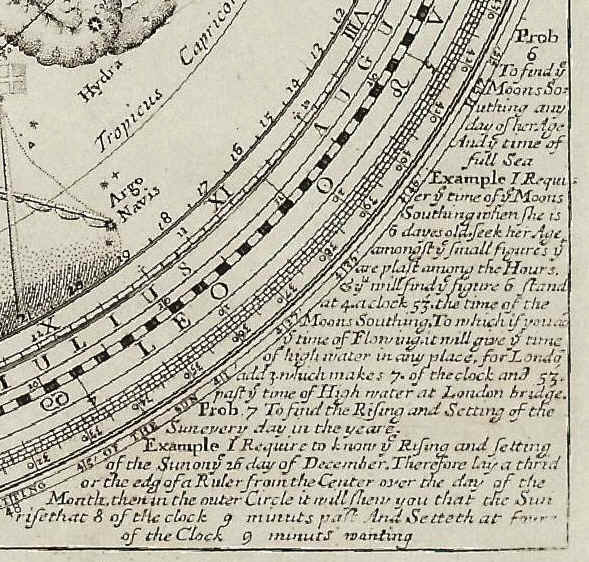 Hydra
Tropicus Capricor
Argo
Navis
12
13
14
15
16
17
18
19
XI
X
AUGU
JULIUS
LEO
OF THE SUN
Prob
6
To find yͤ
Moons So:
uthing any
day of her Age
And yͤ time of
full Sea
Example I Requi:
er yͤ time of yͤ Moons
Southing when she is
6 dayes old, seek her Age,
amongst yͤ small figures yͭ
are plast among the Hours,
& yͧ will find yͤ figure 6 stand
at 4 a clock 53. the time of the
Moons Southing, To which if you ad
yͤ time of Flowing, it will give yͤ time
of high water in any place, for Londō
add 3 which makes 7. of the clock and 53.
past yͤ time of High water at London bridge.
Prob. 7 To find the Rising and Setting of the
Sun every day in the yeare.
Example I Require to know yͤ Rising and setting
of the Sun on yͤ 26 day of December, Therefore lay a thrid
or the edg of a Ruler from the Center over the day of the
Month, then in the outer Circle it will shew you that the Sun
riseth at 8 of the clock 9 minuts past And Setteth at four
of the Clock 9 minuts wanting